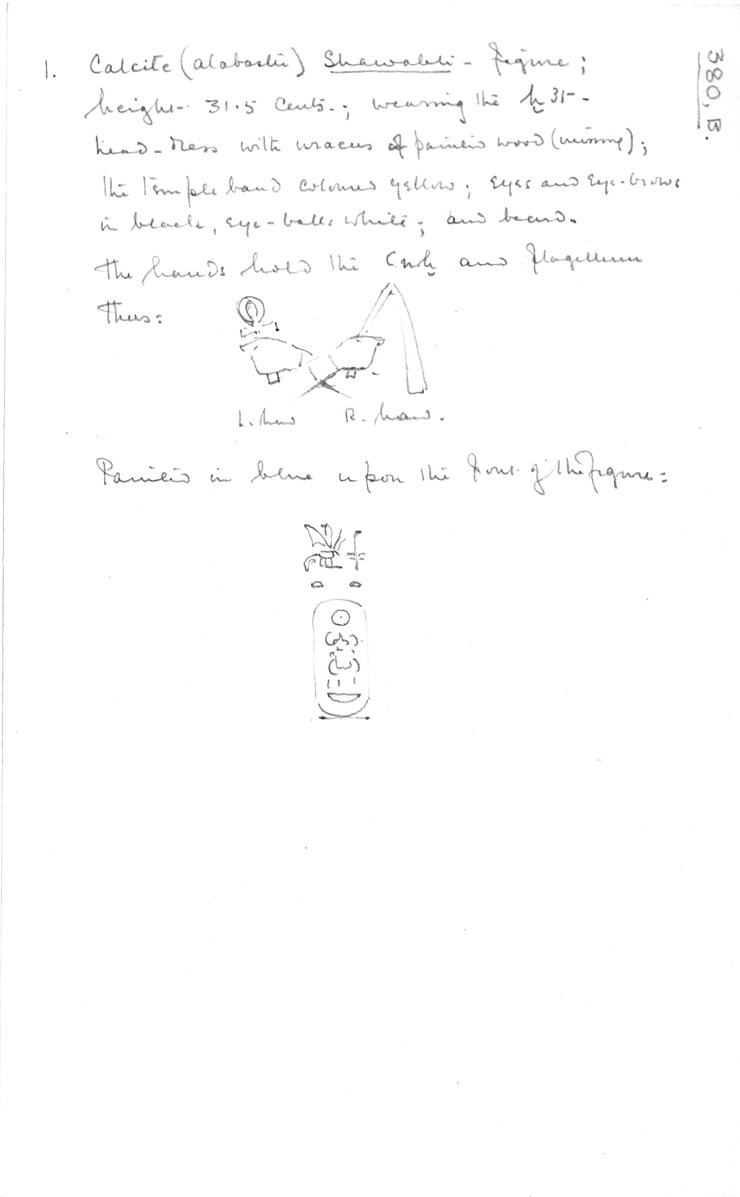 380, B.
1. Calcite (alabaster) Shawabti - figure;
height - 31.5 cents.; wearing the ḫ3t-
head-dress with uraeus of painted wood (missing);
the temple band coloured yellow; eyes and eye-brows
in black, eye-balls white; and beard.
The hands hold the Ꜥnḫ and flagellum
thus:
L. hand R. hand.
Painted in blue upon the front of the figure: